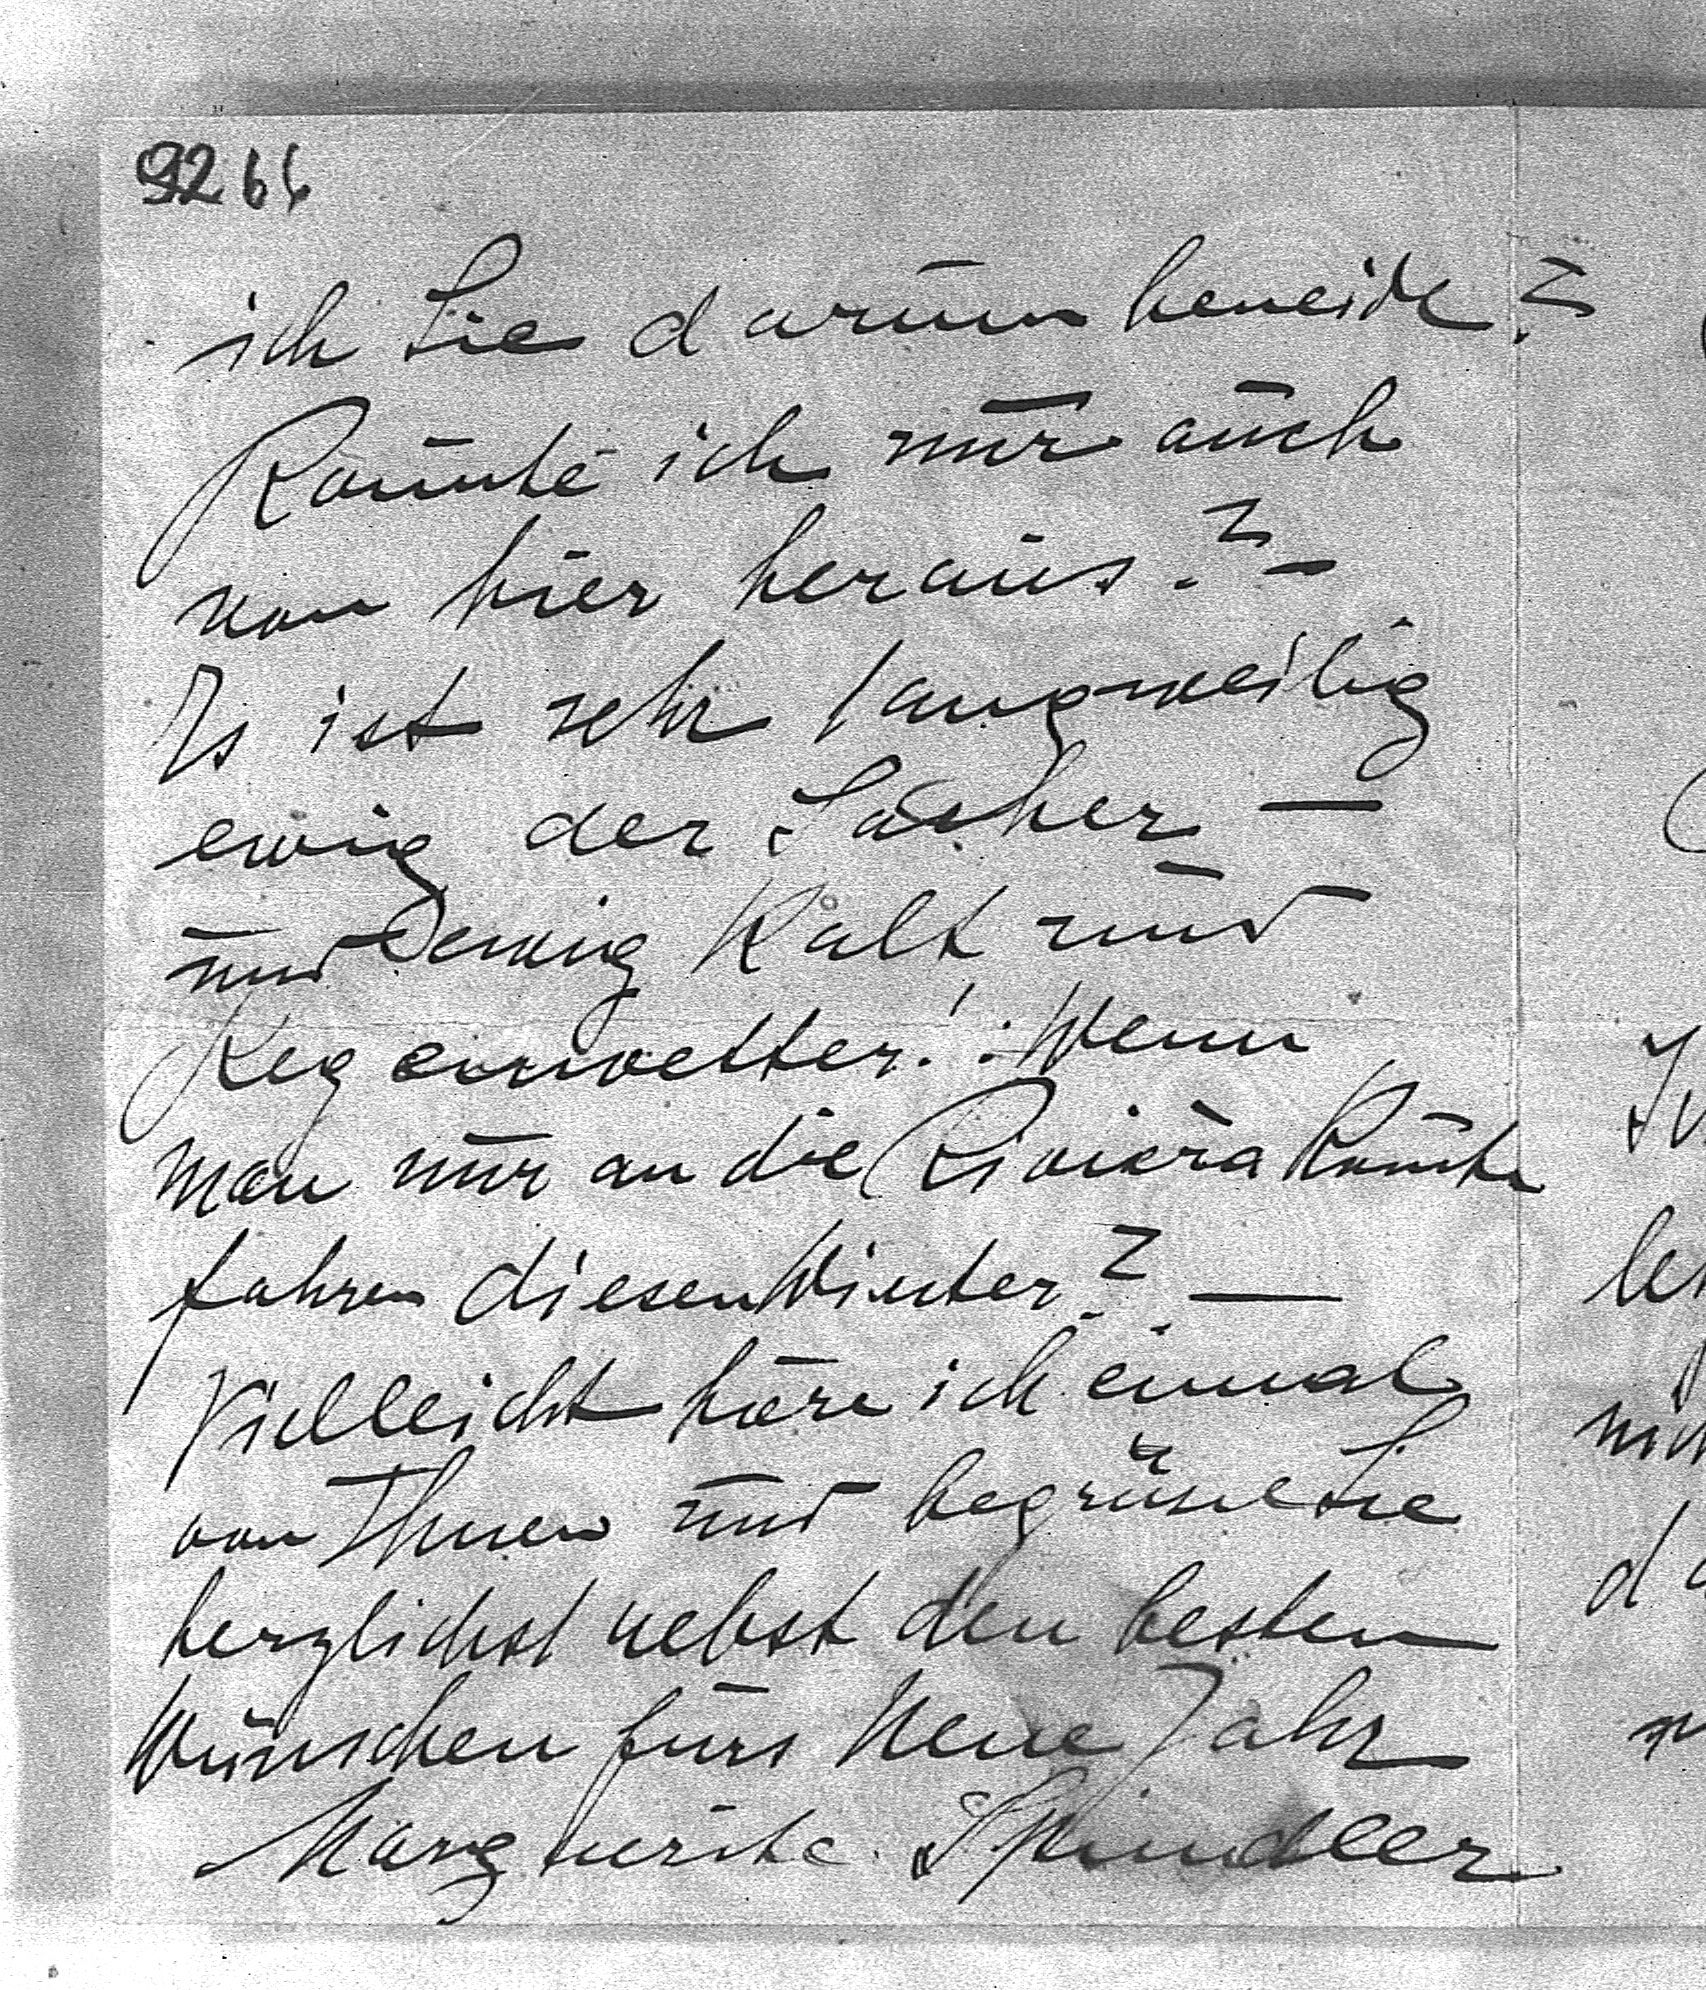 9266
ich Sie darum beneide?
Könnte ich nur auch
von hier heraus? –
Es ist sehr langweilig
ewig der Sacher –
und ewig Kalt und
Regenwetter! Wenn
man nur an die Riviera könnte
fahren diesen Winter? –
Vielleicht höre ich einmal
von Ihnen und begrüsse Sie
herzlichst nebst den besten
Wünschen fürs Neue Jahr
Marguerite Spindler